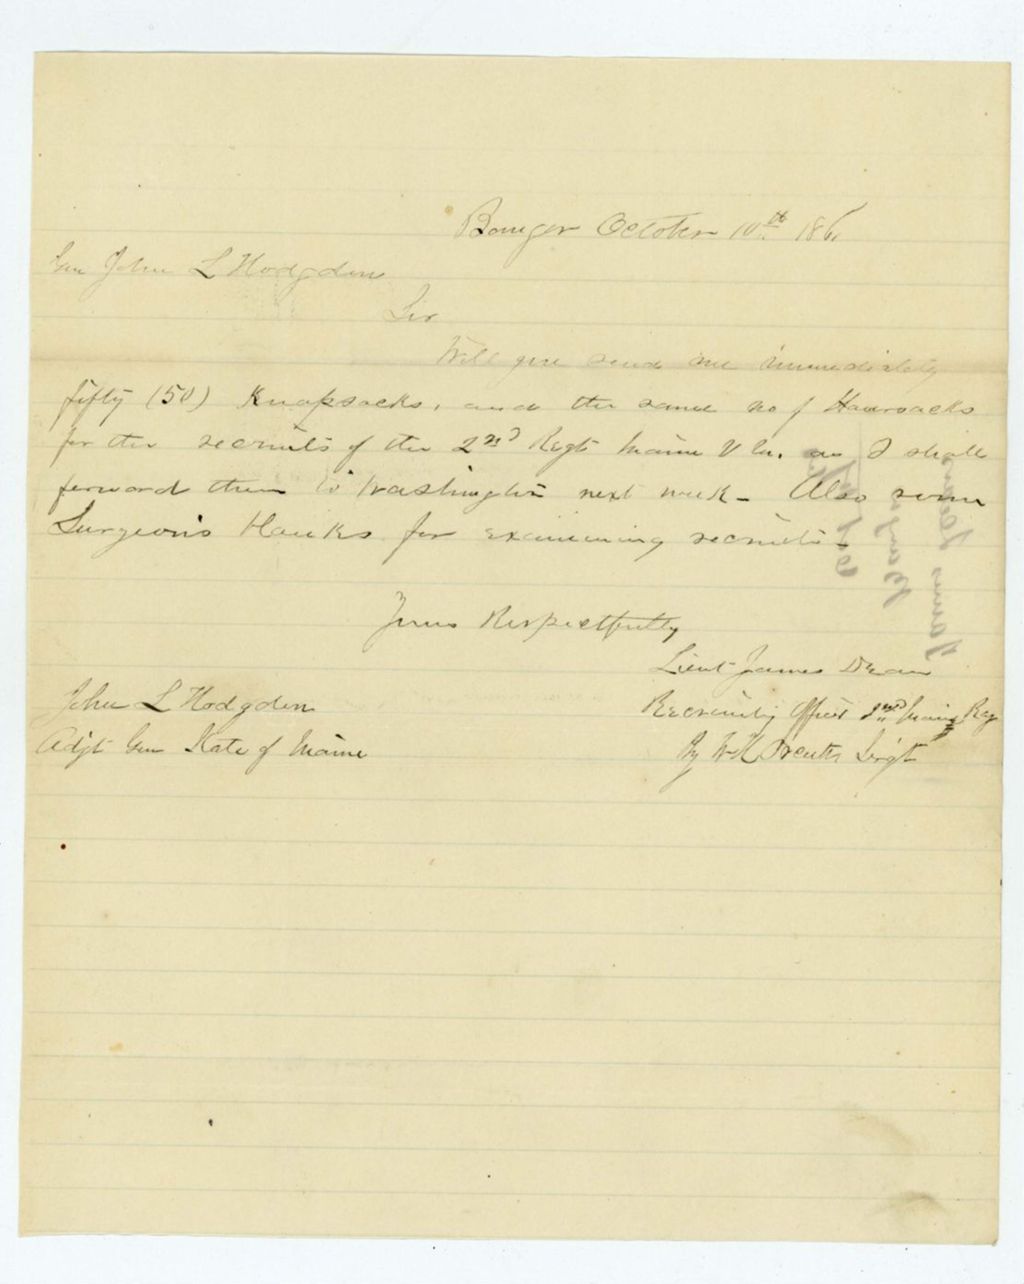 Bangor October 10th 1861
Gen John L Hodgdon
Sir
Will you send me immediately
fifty (50) Knapsacks, and the same no of Haversacks
for the recruits of the 2nd Regt Maine V as I shall
forward them to Washington next week - Also some
Surgeons blanks for examining recruits -
Yours Respectfully
Lieut James Dean
Recruiting Officer 2nd Maine Reg
By Sergt
John L Hodgdon
Adjt Gen State of Maine
James Dean
Bangor